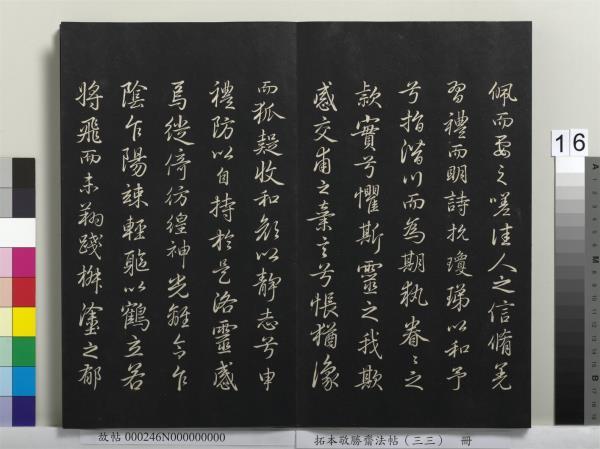 佩而要之嗟佳人之信脩羌
習禮而明詩抗瓊珶以和予
兮指潛川而為期執眷〻之
款實兮懼斯靈之我欺
感交甫之棄言兮悵猶豫
而狐疑收和顏以靜志兮申
禮防以自持於是洛靈感
焉徙倚彷徨神光離合乍
陰乍陽竦輕軀以鶴立若
將飛而未翔踐椒塗之郁
16
故帖 000246N000000000
拓本敬勝齋法帖(三三) 冊